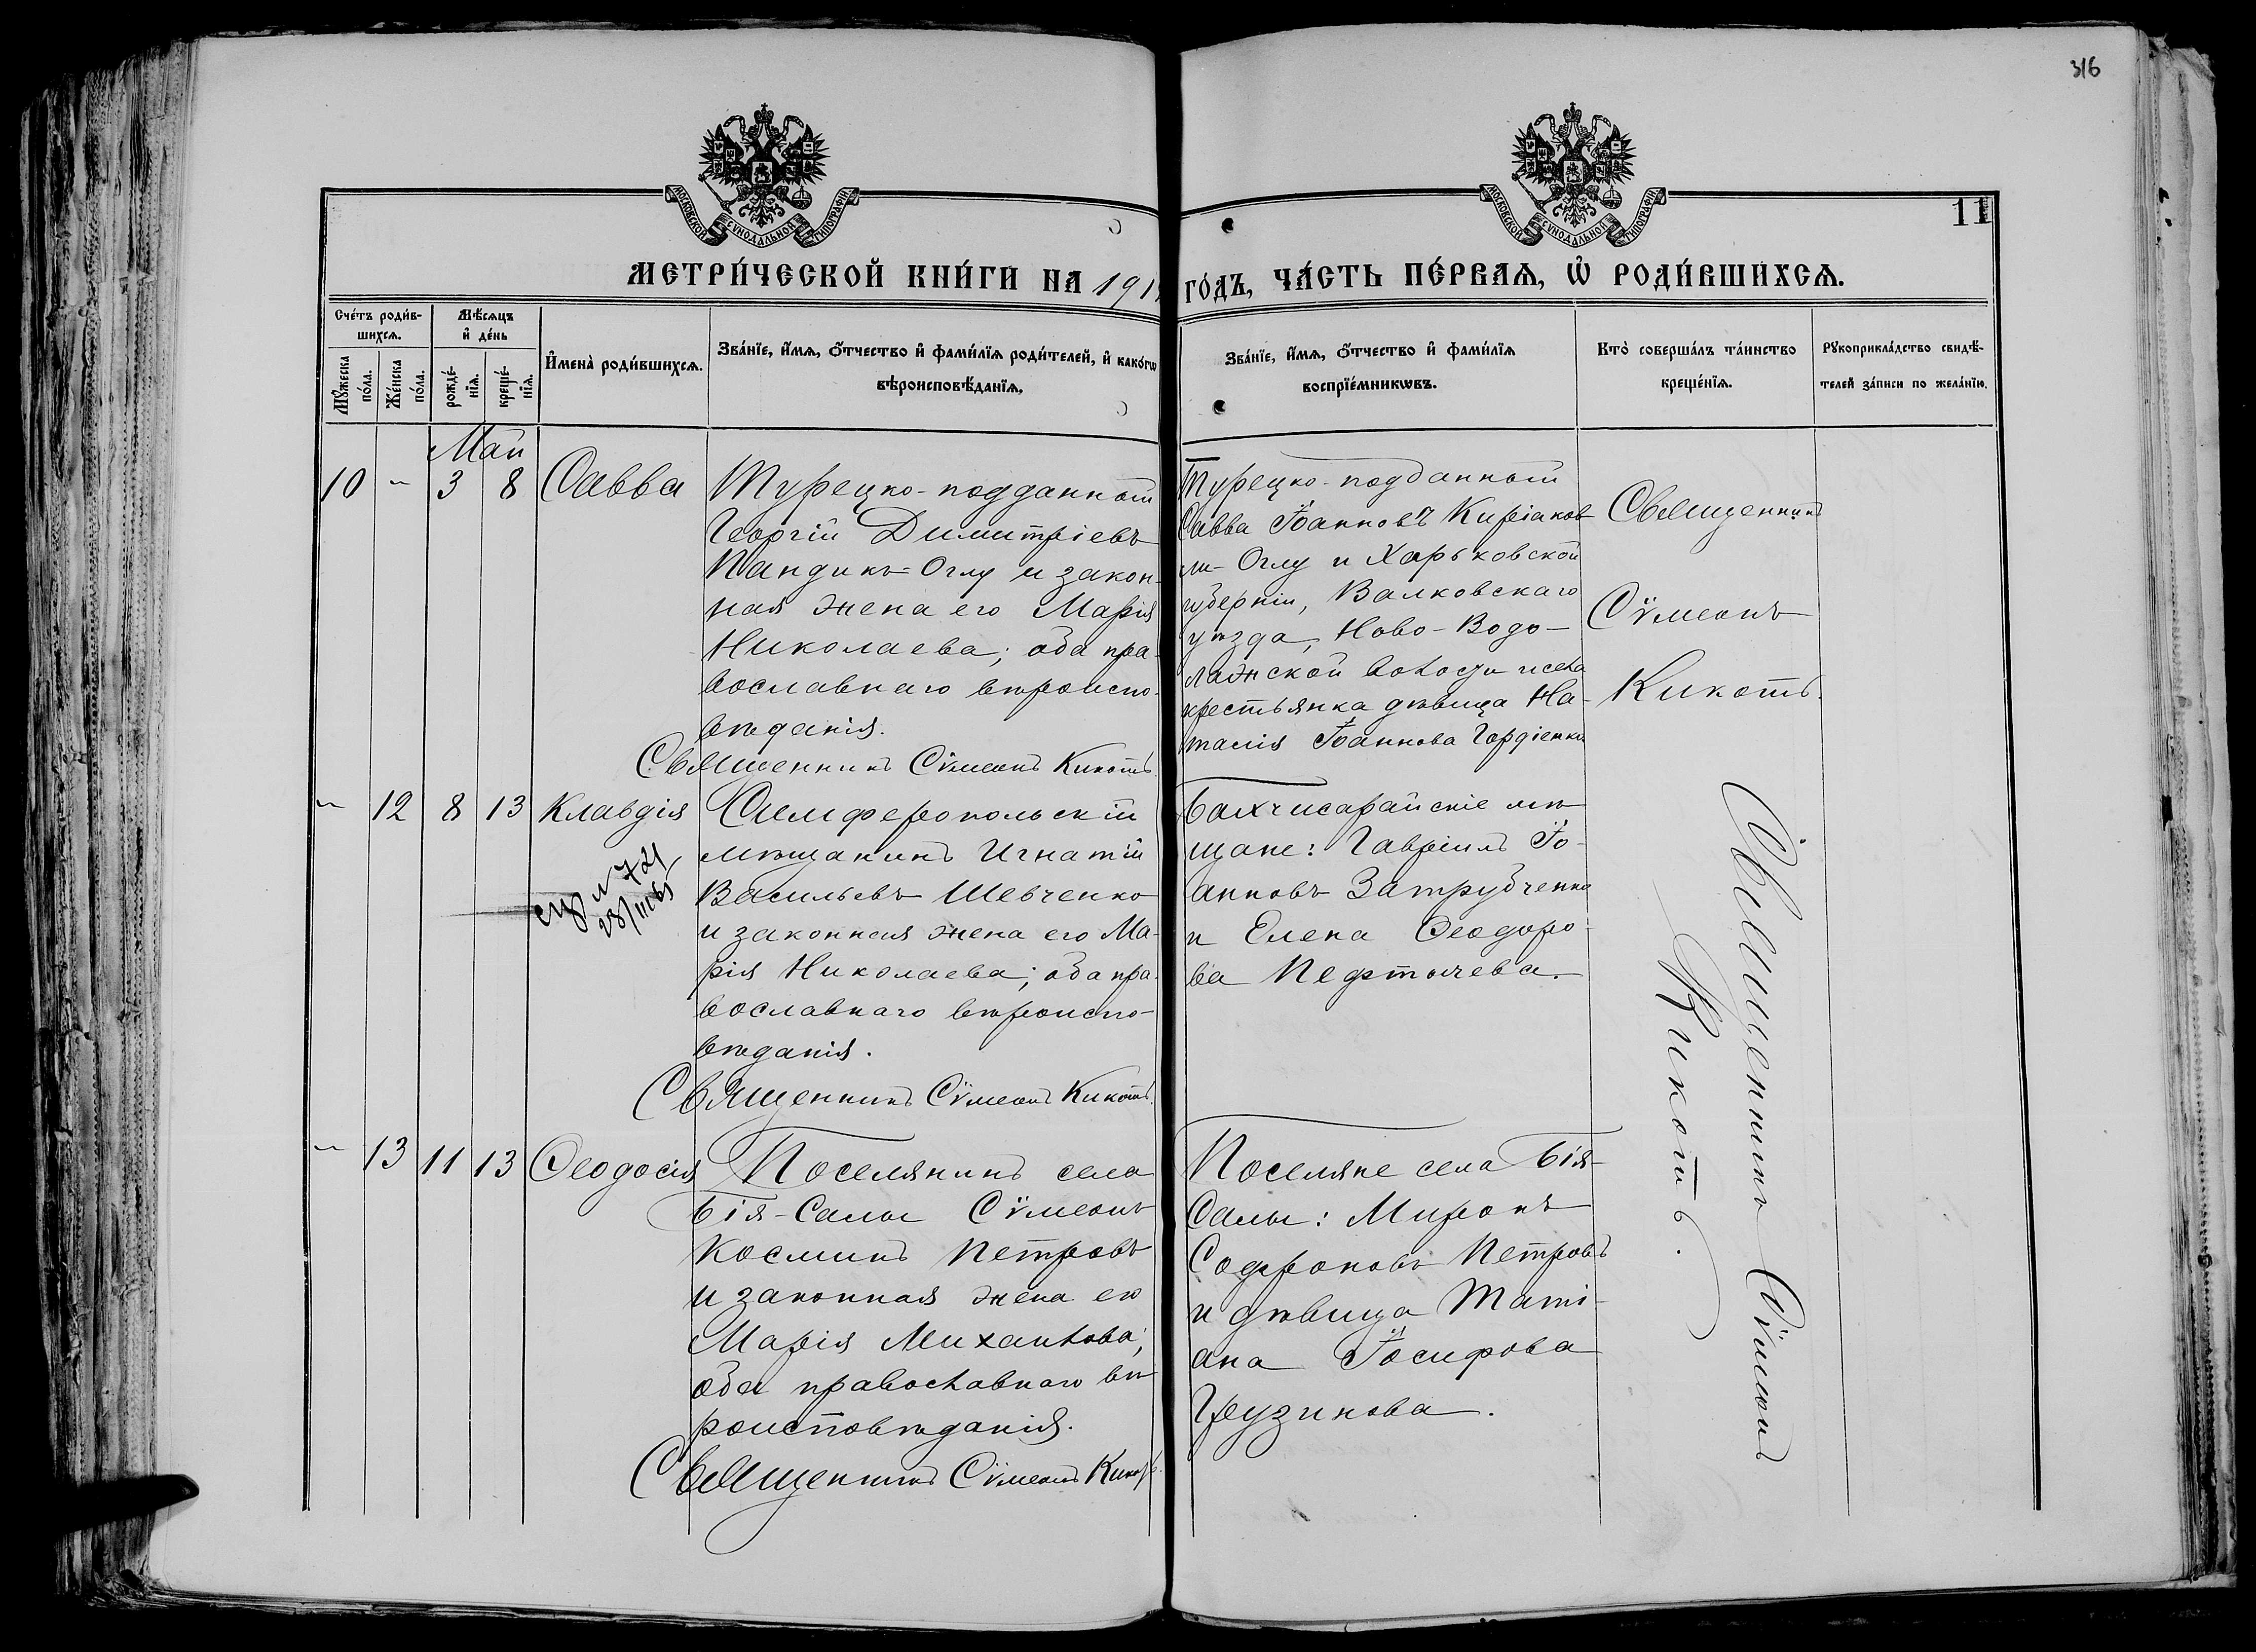 316
МОСКОВСКОЙ СѴНОДАЛЬНОЙ ТИПОГРАФІИ
МОСКОВСКОЙ СѴНОДАЛЬНОЙ ТИПОГРАФІИ
11
МЕТРИ́ЧЕСКОЙ КНИ́ГИ НА 191
ГО́ДЪ, ЧА́СТЬ ПЕ́РВАѦ, Ѡ҆ РОДИ́ВШИХСѦ.
Сче́тъ роди́в-
шихсѧ.
Мꙋ́жеска
по́ла.
Же́нска
по́ла.
Мѣ́сѧцъ
и҆ де́нь
рожде́-
нїѧ.
креще́-
нїѧ.
И҆мена̀ роди́вшихсѧ.
Зва́нїе, и҆́мѧ, ѻ҆́тчество и҆ фами́лїѧ роди́телей, и҆ како́гѡ
вѣроисповѣ́данїѧ.
Зва́нїе, и҆́мѧ, ѻ҆́тчество и҆ фами́лїѧ
воспрїе́мникѡвъ.
Кто̀ соверша́лъ та́инство
креще́нїѧ.
Рꙋкоприкла́дство свидѣ́-
телей за́писи по жела́нїю.
Май
10 - 3 8 Савва
Турецко-подданный
Георгій Димитріевъ
Пандикъ=Оглу и закон-
ная жена его Марія
Николаева; оба пра-
вославнаго вѣроиспо-
вѣданія.
Священникъ Сѵмеонъ Кикоть.
Турецко-подданный
Савва Іоанновъ Киріаков
ли-Оглу и Харьковской
губерніи, Валковскаго
уѣзда, Ново-Водо-
лажской волости и села
крестьянка дѣвица На-
талія Іоаннова Гордіенко
Священникъ
Сѵмеонъ
Кикоть.
- 12 8 13 Клавдія
N 721
28/III 65
Симферопольскій
мѣщанинъ Игнатій
Васильевъ Шевченко
и законная жена его Ма-
рія Николаева; оба пра-
вославнаго вѣроиспо-
вѣданія.
Священникъ Сѵмеонъ Кикоть.
Бахчисарайскіе мѣ-
щане: Гавріилъ Іо-
анновъ Затрубченко
и Елена Ѳеодоро-
ва Пефтычева.
- 13 11 13 Ѳеодосія
Поселянинъ села
Бія-Салы Сѵмеонъ
Косминъ Петровъ
и законная жена его
Марія Михаилова;
оба православнаго вѣ-
роисповѣданія.
Священникъ Сѵмеонъ Кикоть.
Поселяне села Бія-
Салы: Миронъ
Софроновъ Петровъ
и дѣвица Таті-
ана Іосифова
Грузинова.
Священникъ Сѵмеонъ
Кикоть.